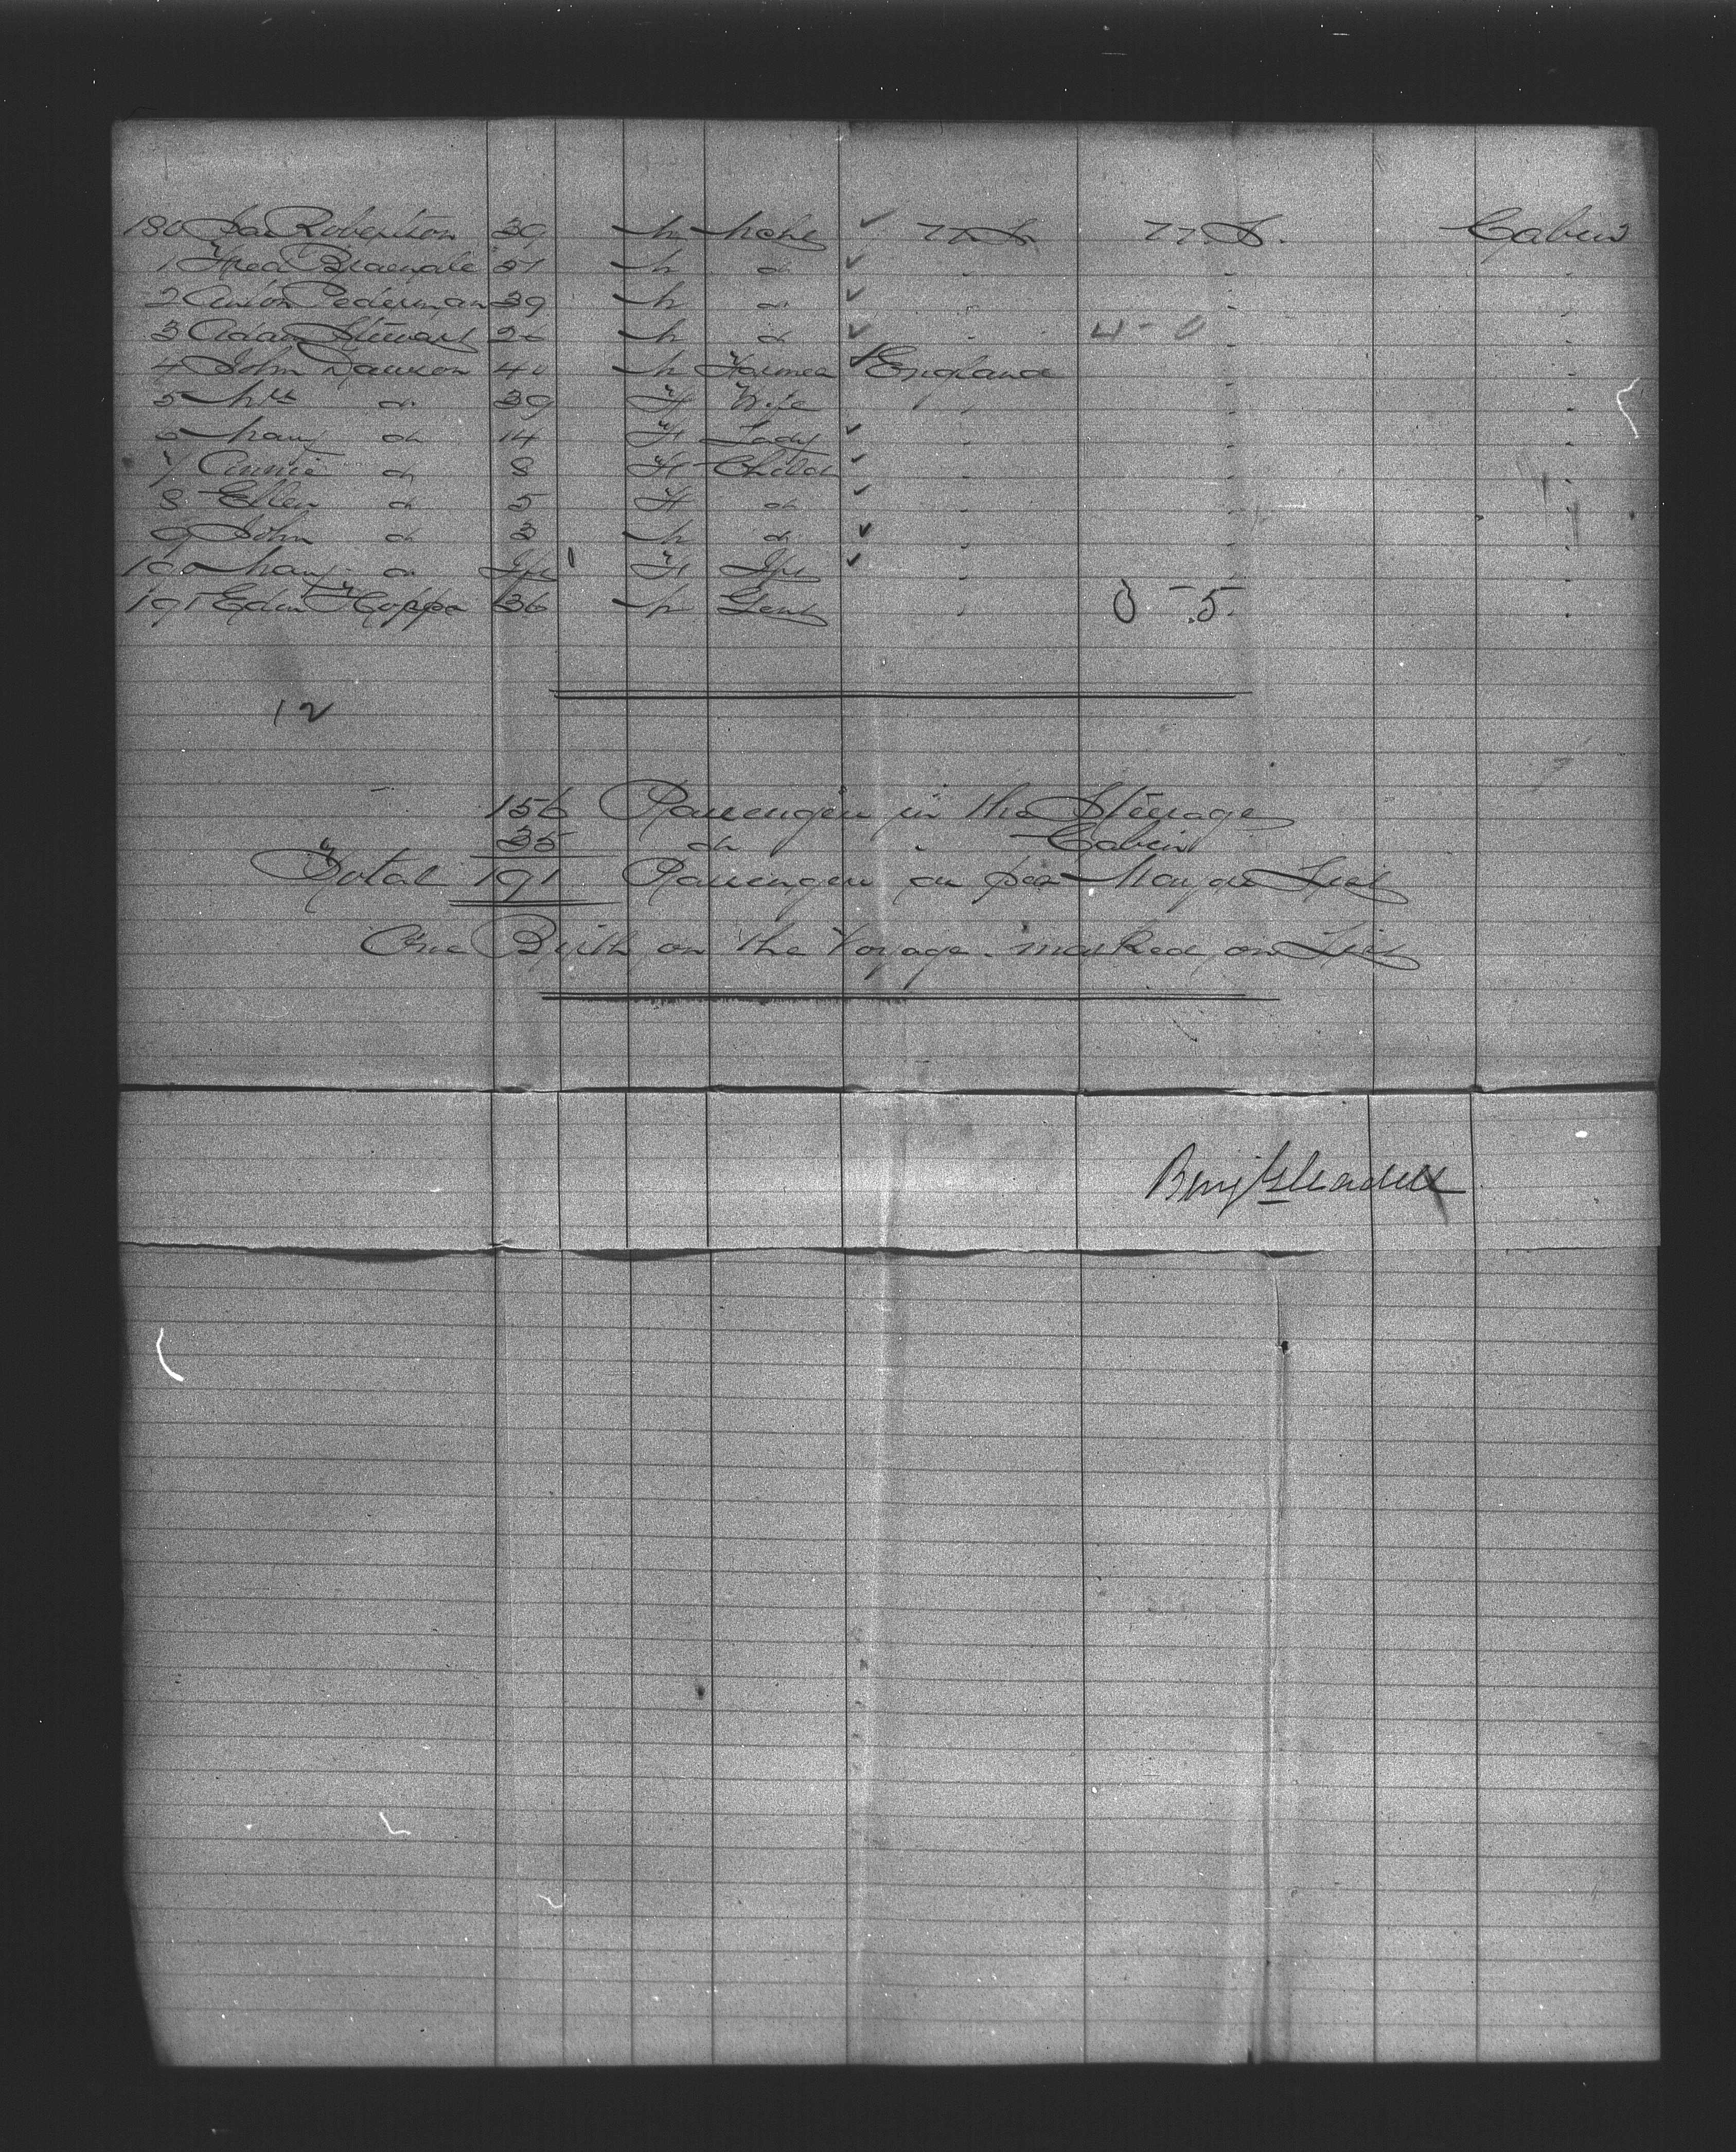 180 Jas Robertson 39 M Mche ✓ U.S. U.S. Cabin
1 Fred 31 M do ✓ " " "
2 Anton Pederman 39 M do ✓ " " "
3 Adam Stewart 26 M do ✓ " 4-0 " "
4 John Dawson 40 M Farmer ✓ England " "
5 Mrs do 39 F Wife " " "
6 Mary do 14 F Lady ✓ " " "
7 Annie do 8 F Child ✓ " " "
8 Ellen do 5 F do ✓ " " "
9 John do 3 M do ✓ " " "
190 Mary do Inf 1 F Inf ✓ " " "
191 Edw Hoppe 36 M Gent " 0-5 " "
12
156 Passengers in the Steerage
35 do " Cabin
Total 191 Passengers as per List
One Birth on the Voyage. marked on List
Benj Gleadell